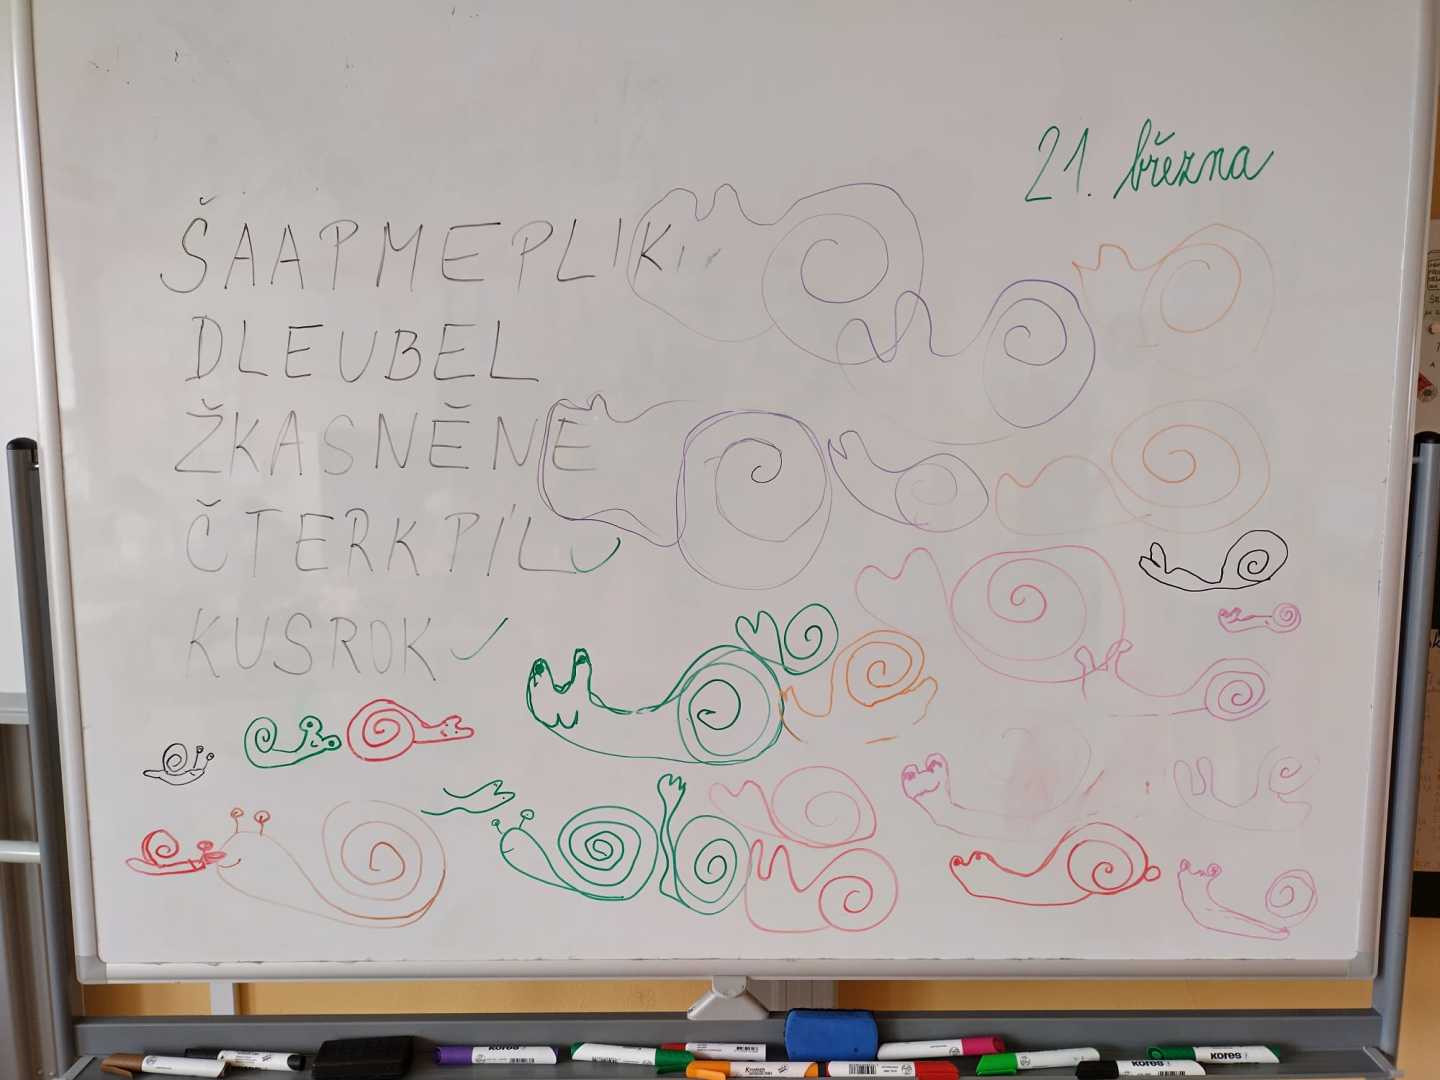 21. března
ŠAAPMEPLIK
DLEUBEL
ŽKASNĚNE
ČTERKPÍL
KUSROK
kores
kores
kores